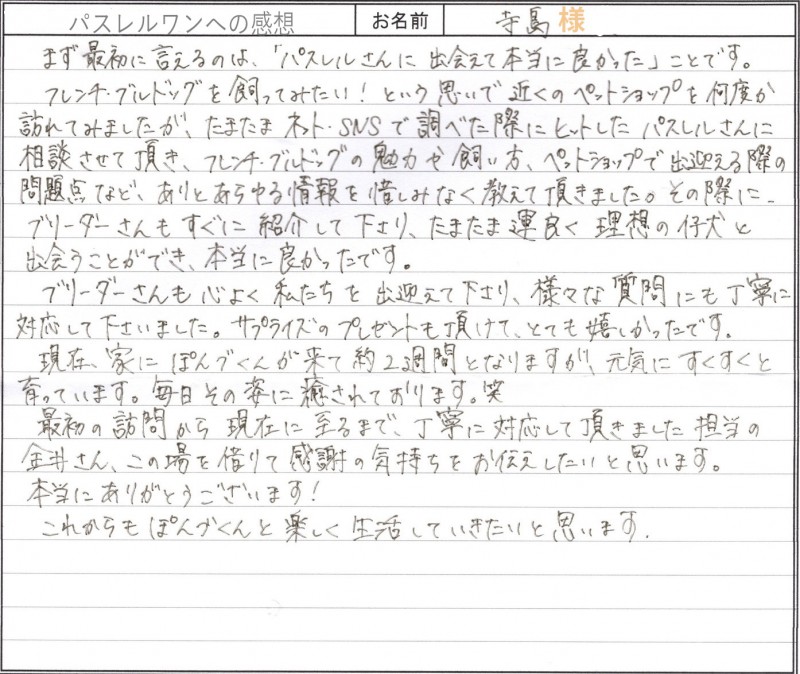 パスレルワンへの感想 お名前 寺島様
まず最初に言えるのは、「パスレルさんに出会えて本当に良かった」ことです。
フレンチ・ブルドッグを飼ってみたい！という思いで近くのペットショップを何度か
訪れてみましたが、たまたまネット・SNSで調べた際にヒットしたパスレルさんに
相談させて頂き、フレンチ・ブルドッグの魅力や飼い方、ペットショップで出迎える際の
問題点など、ありとあらゆる情報を惜しみなく教えて頂きました。その際に、
ブリーダーさんもすぐに紹介して下さり、たまたま運良く理想の仔犬と
出会うことができ、本当に良かったです。
ブリーダーさんも心よく私たちを出迎えて下さり、様々な質問にも丁寧に
対応して下さいました。サプライズのプレゼントも頂けて、とても嬉しかったです。
現在、家にぽんづくんが来て約2週間となりますが、元気にすくすくと
育っています。毎日その姿に癒されております。笑
最初の訪問から現在に至るまで、丁寧に対応して頂きました担当の
金井さん、この場を借りて感謝の気持ちをお伝えしたいと思います。
本当にありがとうございます！
これからもぽんづくんと楽しく生活していきたいと思います.